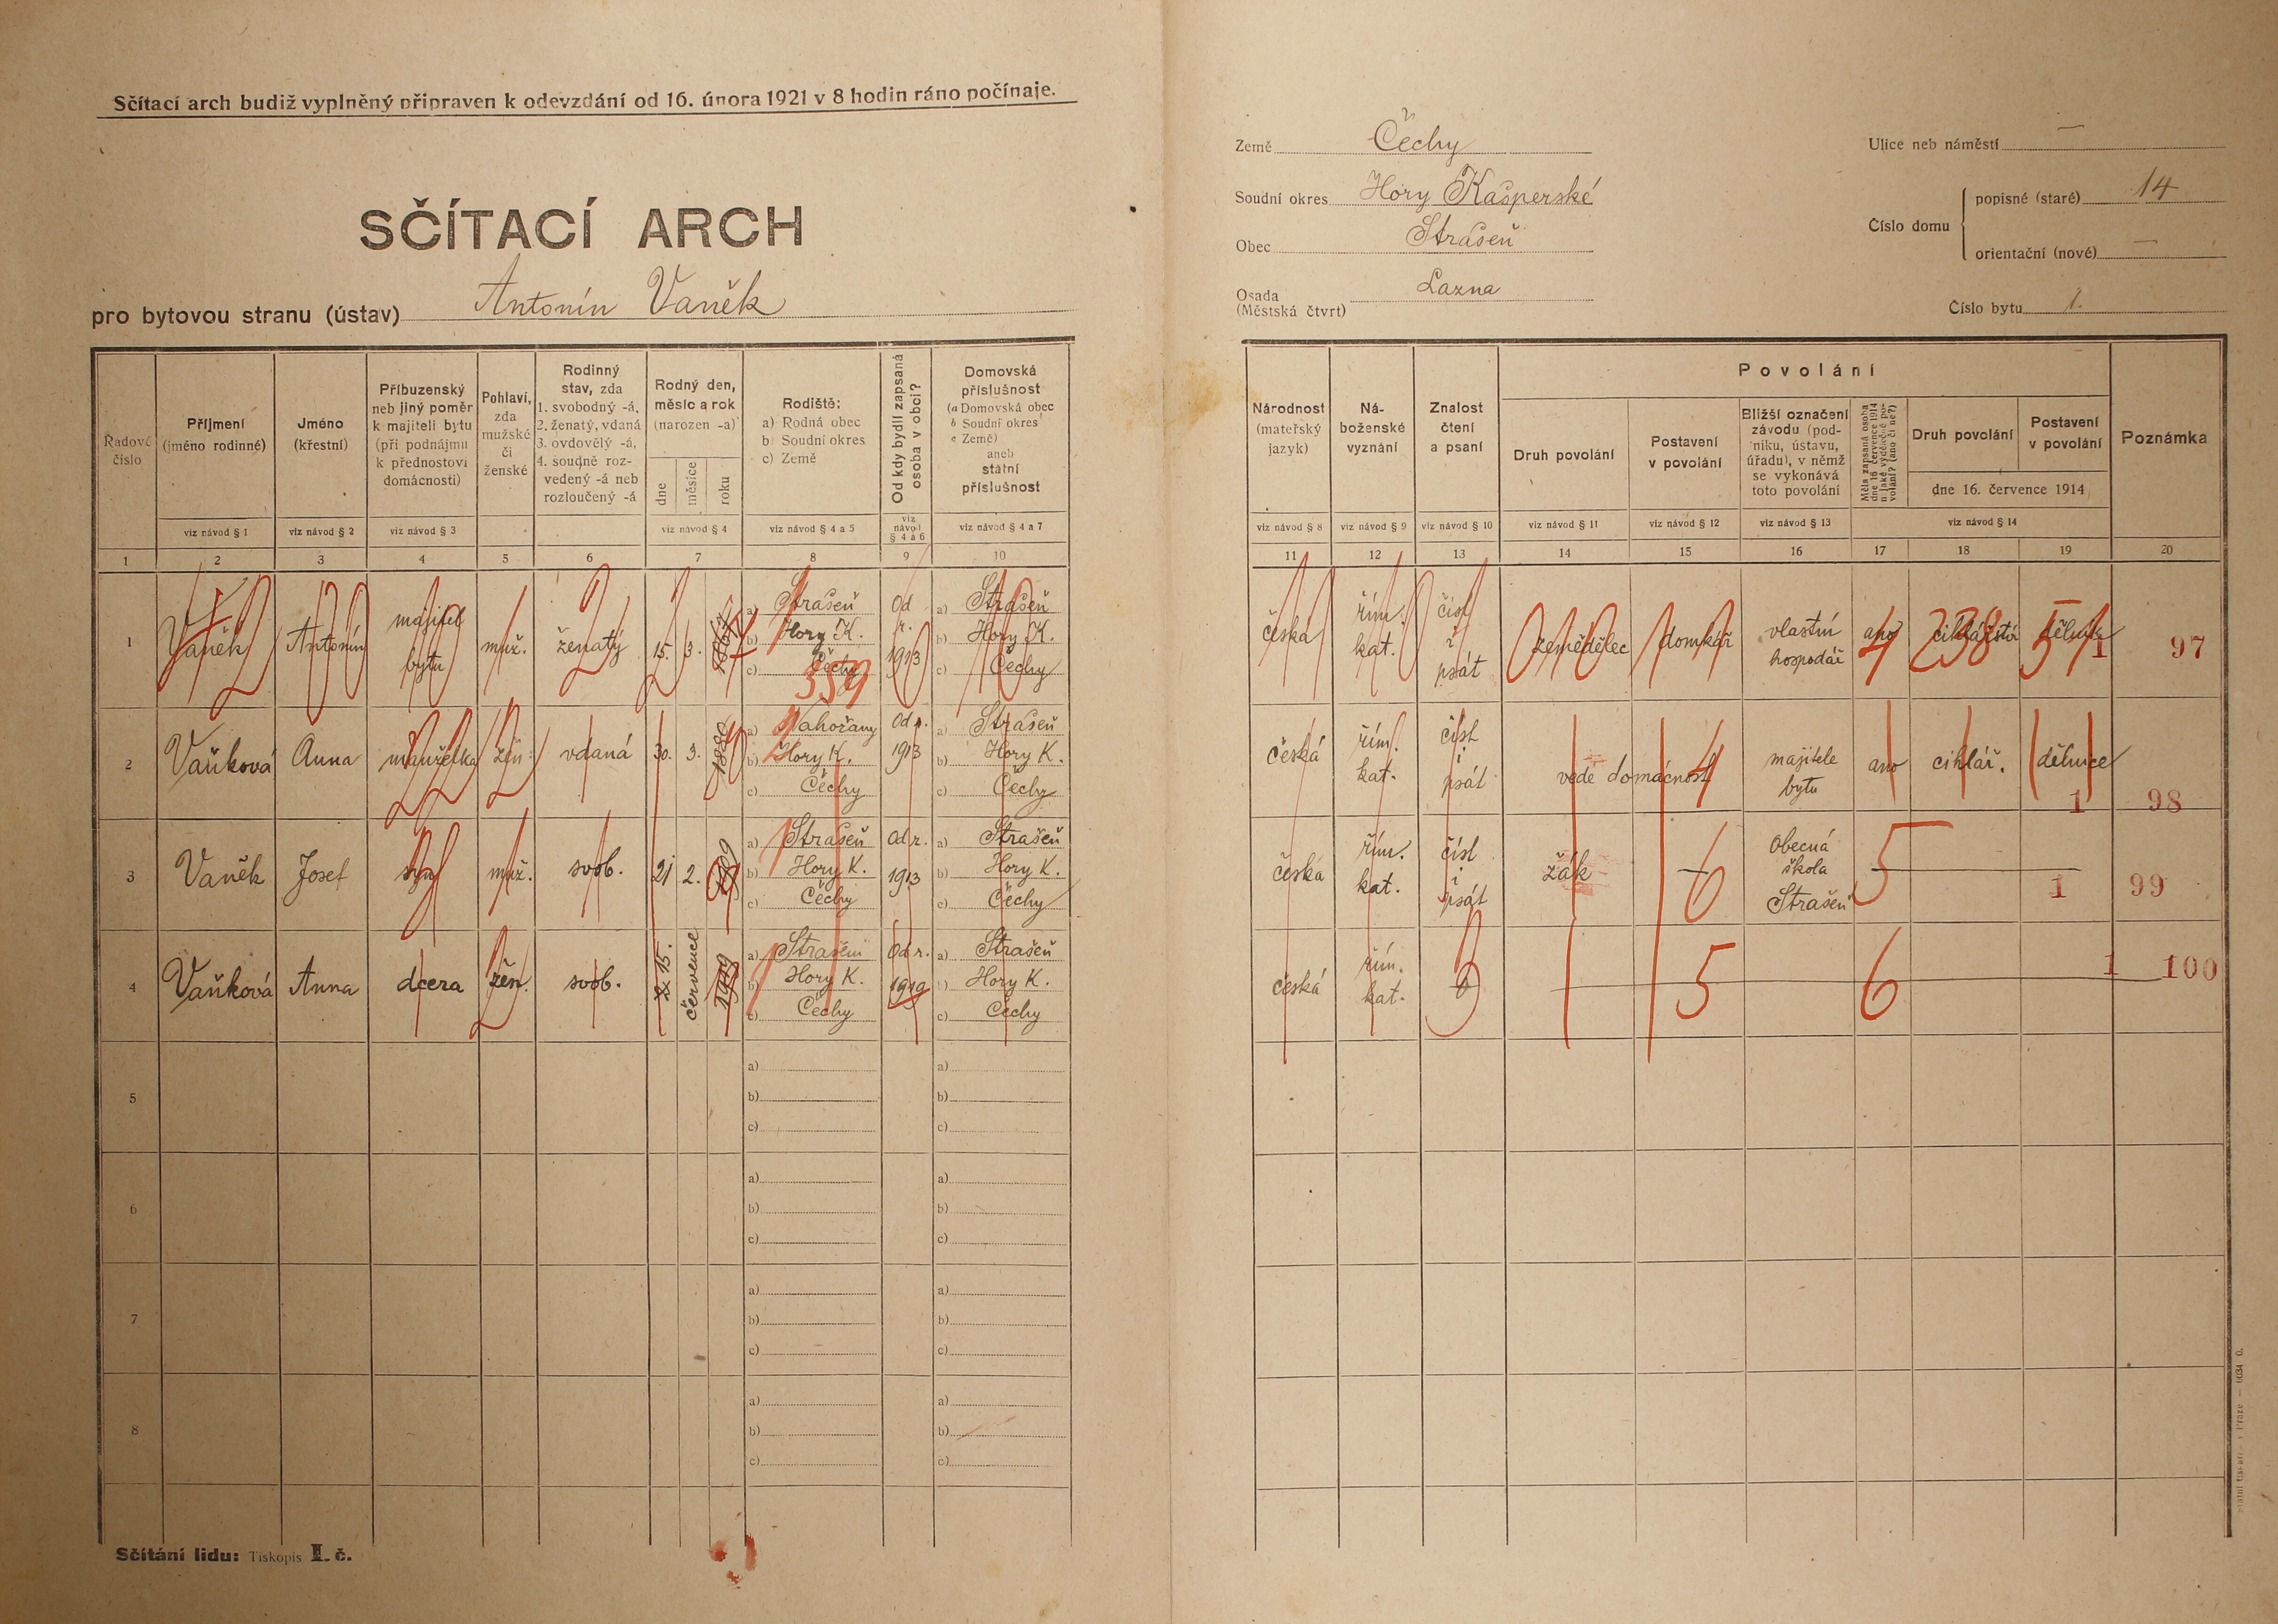 Sčítací arch budiž vyplněný připraven k odevzdání od 16. února 1921 v 8 hodin ráno počínaje.
SČÍTACÍ ARCH
pro bytovou stranu (ústav) Antonín Vaněk
Země Čechy
Soudní okres Hory Kašperské
Obec Strašeň
Osada Lazna
(Městská čtvrt)
Ulice neb náměstí —
Číslo domu
popisné (staré) 14
orientační (nové) —
Číslo bytu 1.
Řadové číslo
Příjmení (jméno rodinné)
Jméno (křestní)
Příbuzenský neb jiný poměr k majiteli bytu (při podnájmu k přednostovi domácnosti)
Pohlaví, zda mužské či ženské
Rodinný stav, zda 1. svobodný -á, 2. ženatý, vdaná 3. ovdovělý -á, 4. soudně rozvedený -á neb rozloučený -á
Rodný den, měsíc a rok (narozen -a)
dne měsíce roku
Rodiště: a) Rodná obec b) Soudní okres c) Země
Od kdy bydlí zapsaná osoba v obci?
Domovská příslušnost (a Domovská obec b Soudní okres c Země) aneb státní příslušnost
Národnost (mateřský jazyk)
Náboženské vyznání
Znalost čtení a psaní
Povolání
Druh povolání
Postavení v povolání
Bližší označení závodu (podniku, ústavu, úřadu), v němž se vykonává toto povolání
Měla zapsaná osoba dne 16 července 1914 nějaké výdělečné povolání? (ano či ne?)
Druh povolání
Postavení v povolání
dne 16. července 1914
Poznámka
viz návod § 1 viz návod § 2 viz návod § 3 viz návod § 4 viz návod § 4 a 5 viz návod § 4 a 6 viz návod § 4 a 7 viz návod § 8 viz návod § 9 viz návod § 10 viz návod § 11 viz návod § 12 viz návod § 13 viz návod § 14
1 2 3 4 5 6 7 8 9 10 11 12 13 14 15 16 17 18 19 20
1 Vaněk Antonín majitel bytu muž. ženatý 15. 3. a) Strašeň b) Hory K. c) Čechy Od r. 1913 a) Strašeň b) Hory K. c) Čechy česká řím. kat. číst i psát zemědělec domkář vlastní hospodář ano dělník 1 97
359
010 4 238 51
2 Vaňková Anna manželka žen. vdaná 30. 3. 1880 a) Nahořany b) Hory K. c) Čechy Od r. 1913 a) Strašeň b) Hory K. c) Čechy česká řím. kat. číst i psát vede domácnost majitele bytu ano cihlář. dělnice 1 98
4
3 Vaněk Josef syn muž. svob. 21 2. a) Strašeň b) Hory K. c) Čechy Od r. 1913 a) Strašeň b) Hory K. c) Čechy česká řím. kat. číst i psát žák — Obecná škola Strašeň 1 99
6 5
4 Vaňková Anna dcera žen. svob. 15. července 1919 a) Strašeň b) Hory K. c) Čechy Od r. 1919 a) Strašeň b) Hory K. c) Čechy česká řím. kat. 0 1 100
5 6
5 a) b) c) a) b) c)
6 a) b) c) a) b) c)
7 a) b) c) a) b) c)
8 a) b) c) a) b) c)
Sčítání lidu: Tiskopis I. č.